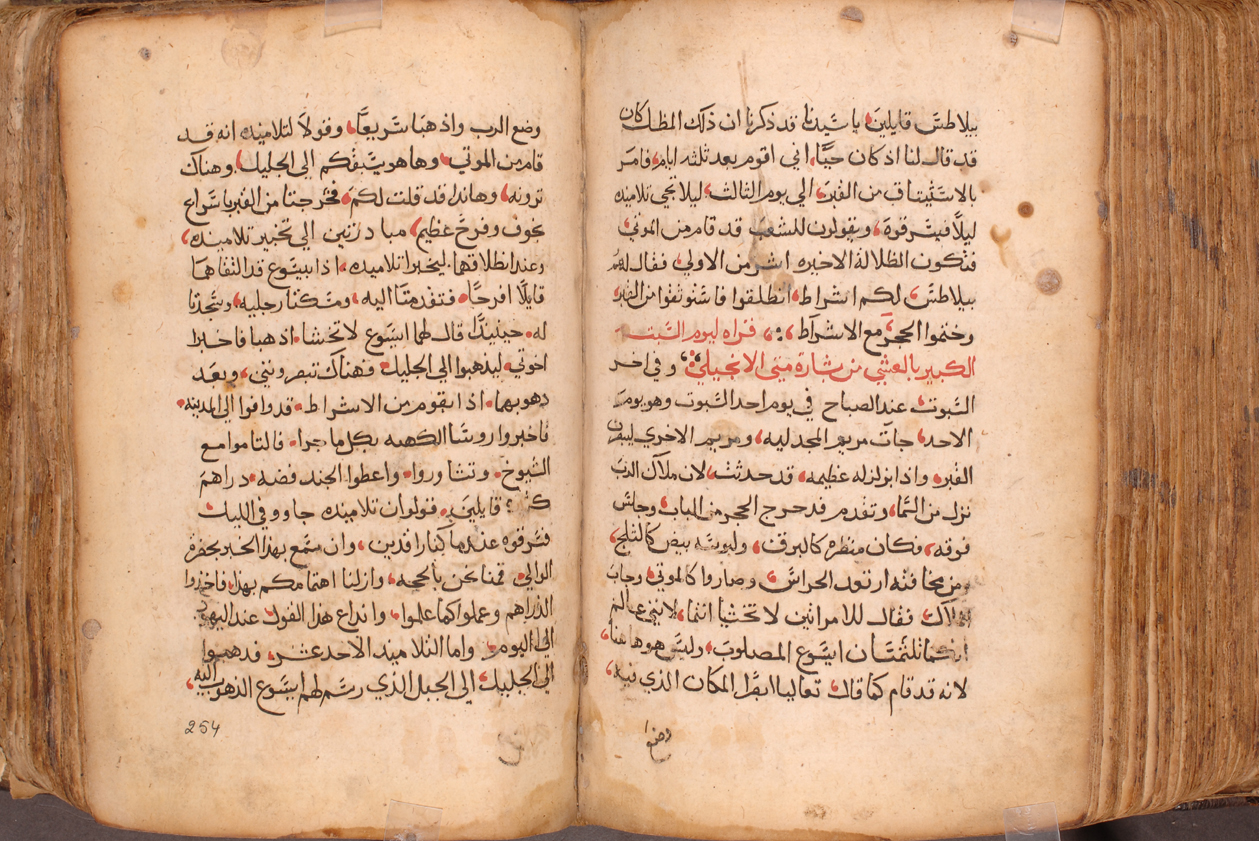 بيلاطس قايلين يا سيدنا قد ذكرنا ان ذلك المظل كان
قد قال لنا اذ كان حيا اني اقوم بعد ثلثه ايام فامر
بالاستيثاق من القبر الي يوم الثالث ليلا تجي تلاميذه
ليلا فيسرقوه ويقولون للشعب قد قام من الموتي
فتكون الظلالة الاخيره اشر من الاولي فقال لهم
بيلاطس لكم اشراط انطلقوا فاستوثقوا من القبر
وختموا الحجر مع الاشراط قراه ليوم السبت
الكبير بالعشي من بشارة متي الانجيلي وفي اخر
السبوت عند الصباح في يوم احد السبوت وهو يوم
الاحد جات مريم المجدليه ومريم الاخري ليبصرن
القبر واذا بزلزله عظيمه قد حدثت لان ملاك الرب
نزل من السما وتقدم فدحرج الحجر من الباب وجلس
فوقه فكان منظره كالبرق ولبوسه بيض كالثلج
ومن مخافته ارتعد الحراس وصاروا كالموتي وجاب
الملاك فقال للامراتين لا تخشيا انتما لانني عالم
انكما تلتمسان ايسوع المصلوب وليس هو هاهنا
لانه قد قام كما قال تعاليا ابصرا المكان الذي فيه
وضع
وضع الرب واذهبا سريعا وقولا لتلاميذه انه قد
قام من الموتي وها هو يسبقكم الي الجليل وهناك
ترونه وهانذا قد قلت لكم فخرجتا من القبر باسراع
بخوف وفرح عظيم مبادرتين الي تخبير تلاميذه
وعند انطلاقها ليخبرا تلاميذه اذا بيسوع قد التقاهما
قايلا افرحا فتقدمتا اليه ومسكتا رجليه وسجدتا
له حينيذ قال لهما ايسوع لا تخشا اذهبا فاخبرا
اخوتي ليذهبوا الي الجليل فهناك تبصرونني وبعد
ذهوبهما اذا بقوم من الاشراط قد وافوا الي المدينه
فاخبروا روسا الكهنه بكل ما جرا فالتاموا مع
الشيوخ وتشاوروا واعطوا الجند فضه دراهم
قايلين قولوا ان تلاميذه جاوو في الليل
فسرقوه عندما كنا راقدين وان سمع بهذا الخبر بحضرة
الوالي قمنا نحن بالحجه وازلنا اهتمامكم بهذا فاخذوا
الدراهم وعملوا كما علموا وانذاع هذا القول عند اليهود
الي اليوم واما التلاميذ الاحد عشر فذهبوا
الي الجليل الي الجبل الذي رسم لهم ايسوع الذهوب اليه
254